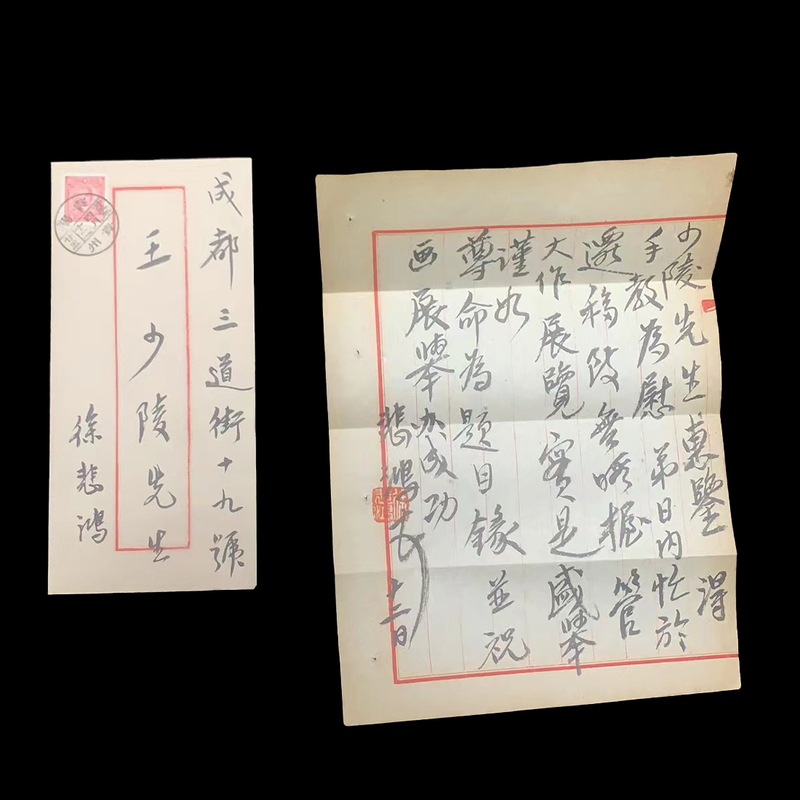 成都三道街十九號
王少陵先生
徐悲鴻
少陵先生惠鑒 得
手教為慰 弟日內忙於
遷移故無暇握管
大作展覽實是盛舉
謹如
尊命為題目錄 並祝
画展舉办成功
悲鴻
十二日